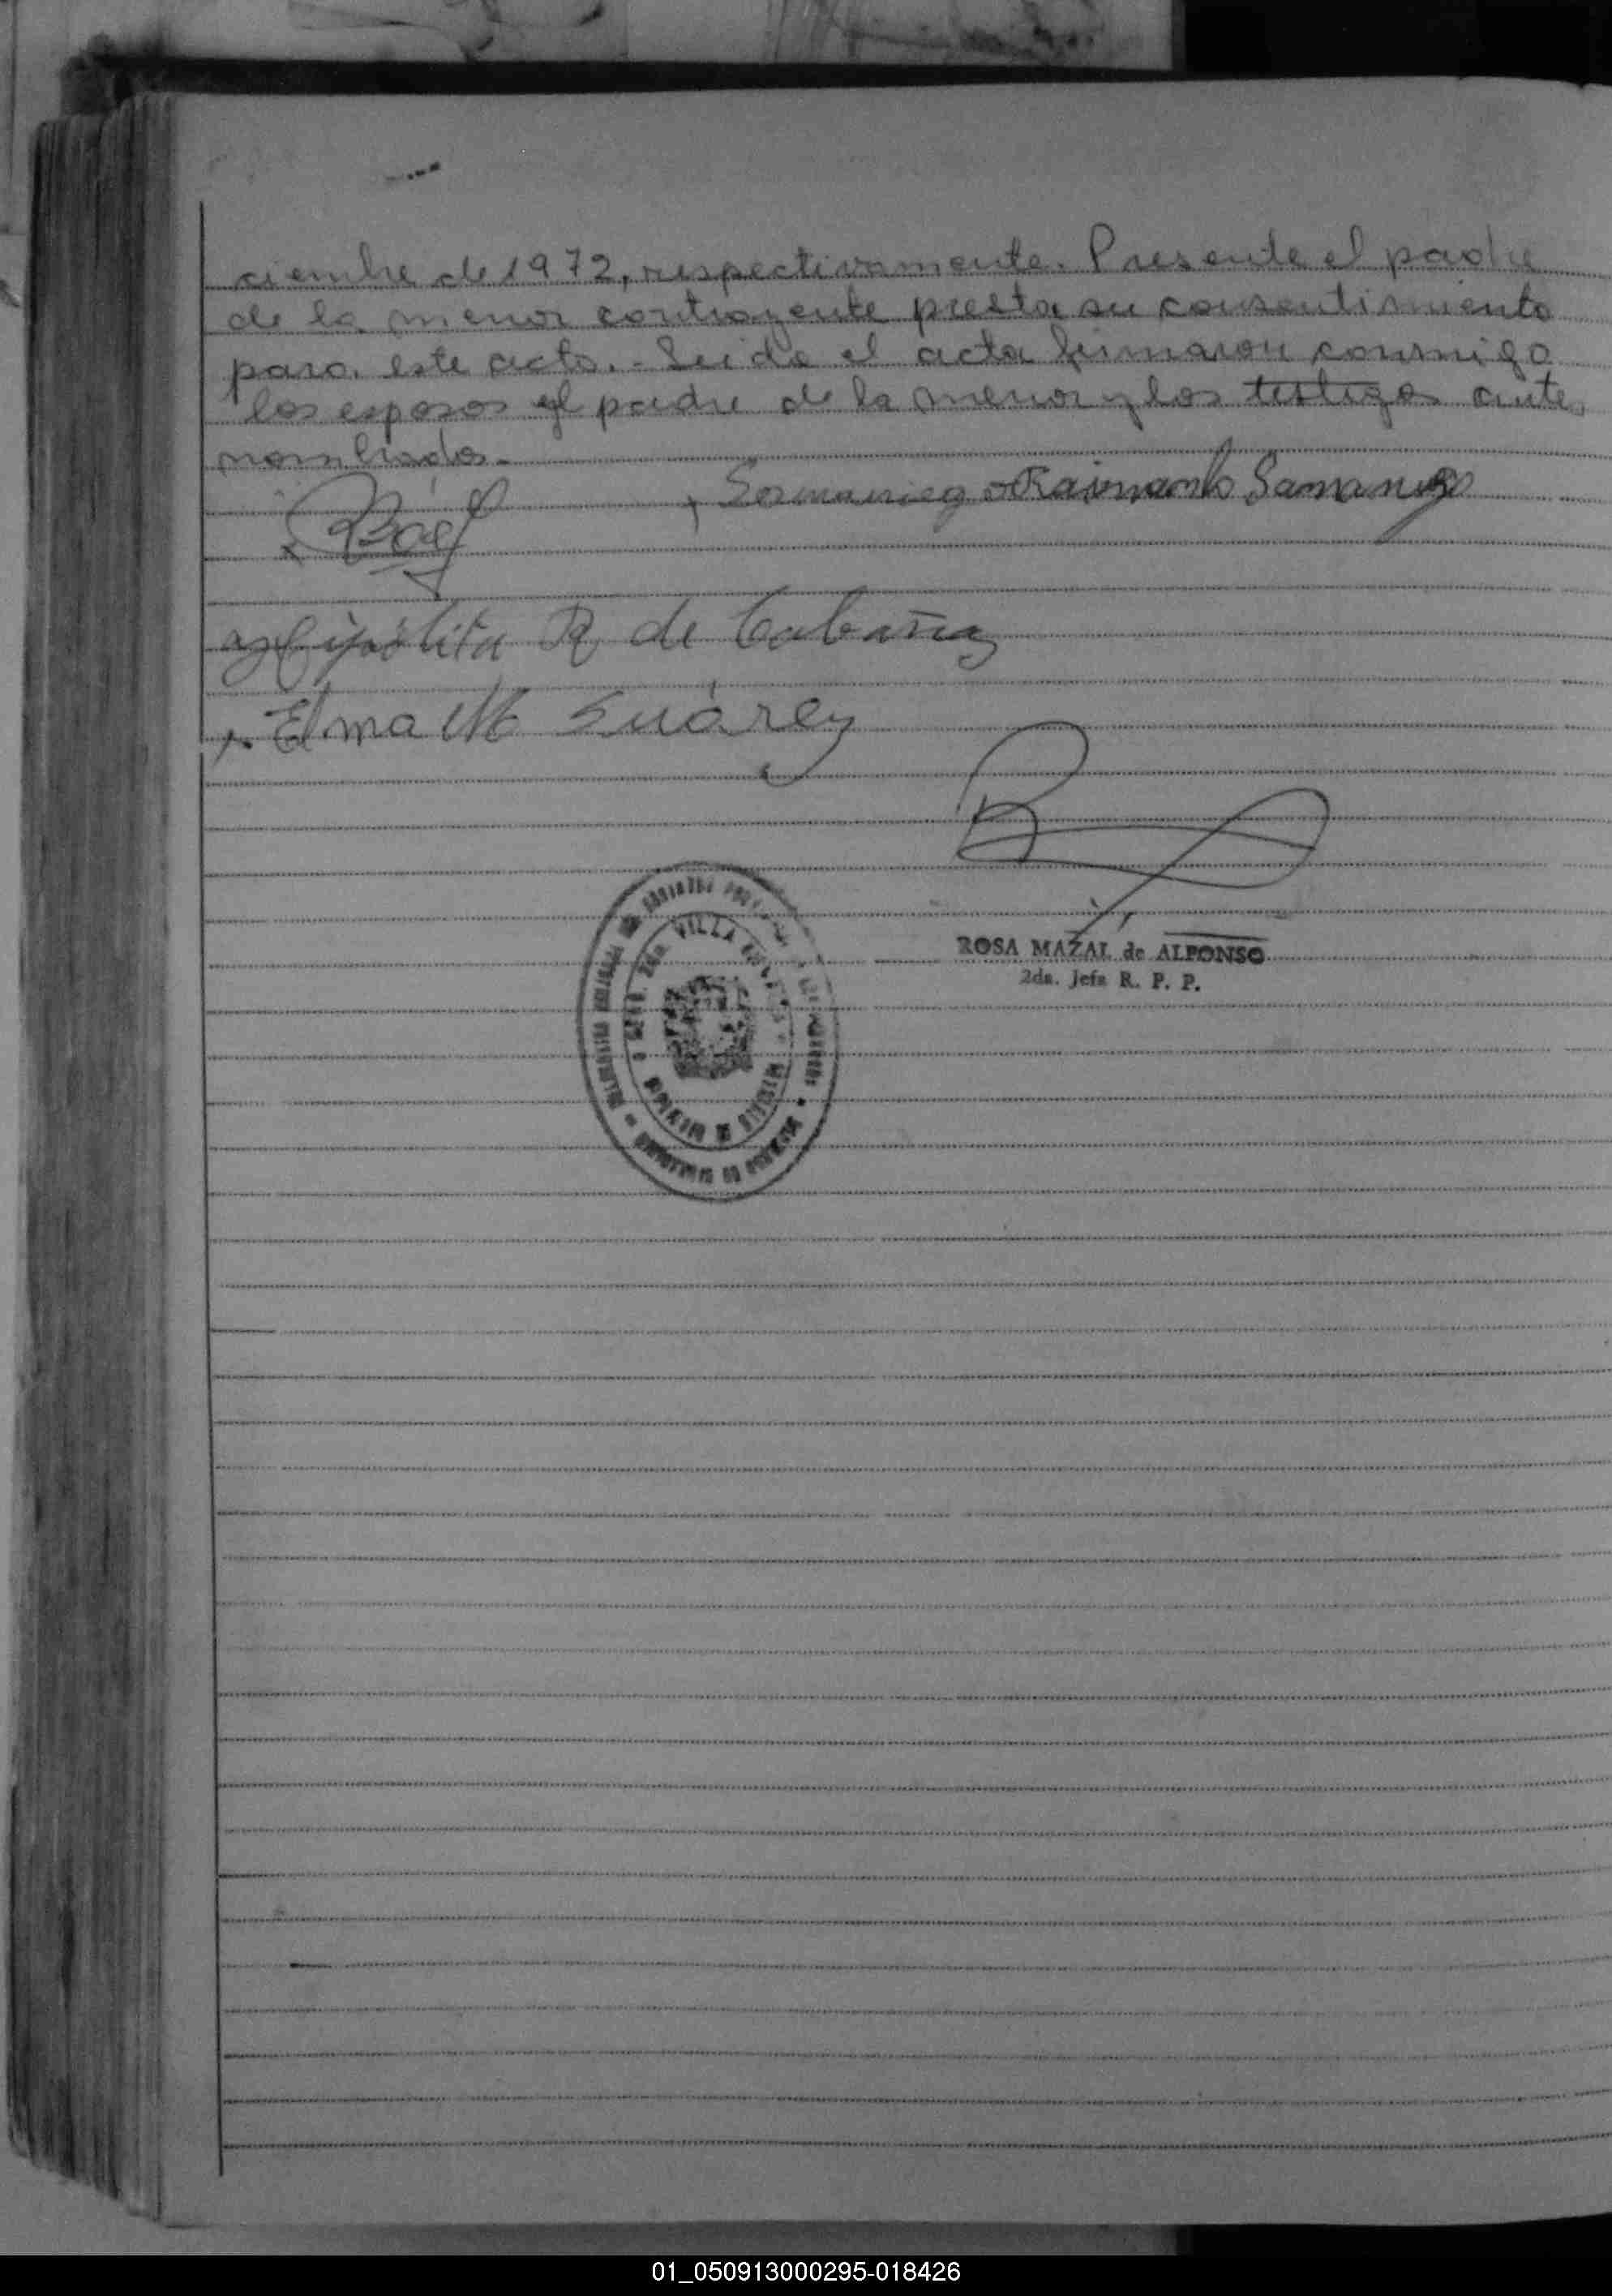 ciembre de 1972, respectivamente. Presente el padre
de la menor contrayente presta su consentimiento
para este acto. - Leida el acta firmaron conmigo
los esposos el padre de la menor y los testigos ante,
nombrados.-
Raimundo Samaniego
Hipólita R de Cabañas
Elma M Suárez
ROSA MAZAL de ALFONSO
2da. Jefa R. P. P.
VILLA
01_050913000295-018426